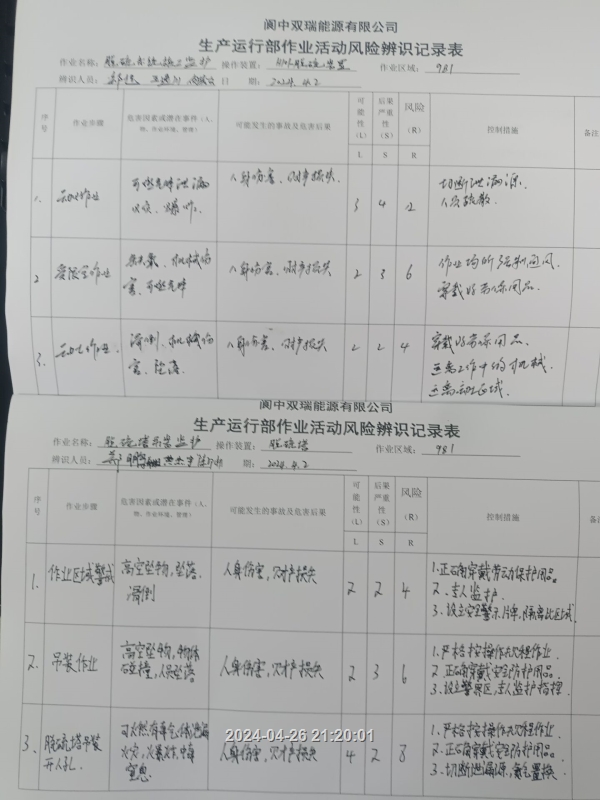 阆中双瑞能源有限公司
生产运行部作业活动风险辨识记录表
作业名称: 脱硫系统施工监护 操作装置: 脱硫装置 作业区域: 981
辨识人员: 日 期: 2024.4.2
序号 作业步骤 危害因素或潜在事件(人、物、作业环境、管理) 可能发生的事故及危害后果 可能性(L) 后果严重性(S) 风险(R) 控制措施 备注
L S R
1. 动火作业 可燃气体泄漏 火灾、爆炸. 人身伤害、财产损失. 3 4 12 切断泄漏源. 人员疏散.
2 受限空作业 机械伤害、可燃气体 人身伤害、财产损失 2 3 6 作业场所强制通风. 穿戴好劳保用品.
3. 动土作业. 滑倒、机械伤害、坠落. 人身伤害、财产损失 2 2 4 穿戴好劳保用品. 远离工作中的机械. 远离动土区域.
阆中双瑞能源有限公司
生产运行部作业活动风险辨识记录表
作业名称: 脱硫塔吊装监护 操作装置: 脱硫塔 作业区域: 981
辨识人员: 期: 2024.4.2
序号 作业步骤 危害因素或潜在事件(人、物、作业环境、管理) 可能发生的事故及危害后果 可能性(L) 后果严重性(S) 风险(R) 控制措施
L S R
1. 作业区域警戒 高空坠物,坠落. 滑倒 人身伤害,财产损失 2 2 4 1.正确穿戴劳动保护用品. 2.专人监护. 3.设立安全警示片牌,隔离此区域.
2. 吊装作业 高空坠物,物体碰撞,人员坠落 人身伤害,财产损失 2 3 6 1.严格按操作规程作业. 2.正确穿戴安全防护用品. 3.设立警界区,专人监护指挥.
3、 脱硫塔吊装开人孔. 可燃有毒气体泄漏 火灾,爆炸,中毒 窒息 人身伤害,财产损失 4 2 8 1.严格按操作规程作业. 2.正确穿戴安全防护用品. 3.切断泄漏源,氮气置换.
2024-04-26 21:20:01